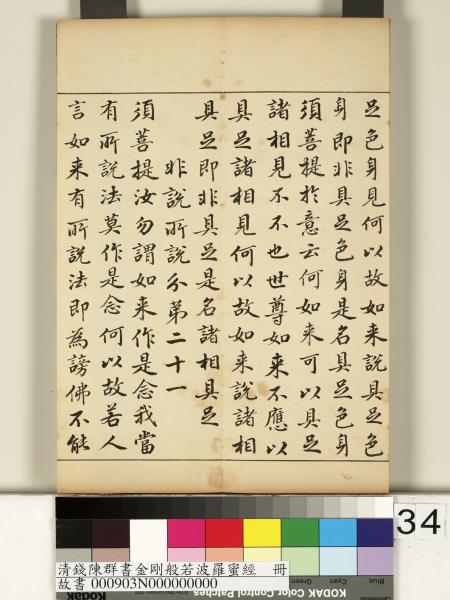 足色身見何以故如来說具足色
身即非具足色身是名具足色身
須菩提於意云何如来可以具足
諸相見不不也世尊如来不應以
具足諸相見何以故如来說諸相
具足即非具足是名諸相具足
非說所說分第二十一
須菩提汝勿謂如来作是念我當
有所說法莫作是念何以故若人
言如来有所說法即為謗佛不能
34
Blue
Cyan
Green
Kodak
KODAK Color Control Patches
清錢陳群書金剛般若波羅蜜經 冊
故書 000903N000000000